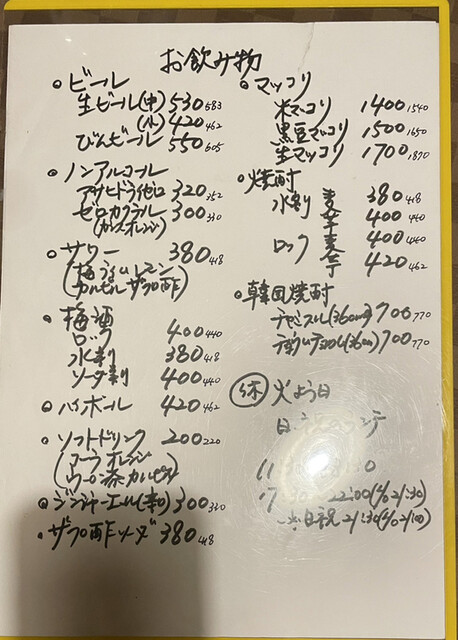 お飲み物
・ビール
生ビール(中) 530 583
(小) 420 462
びんビール 550 605
・ノンアルコール
アサヒドライゼロ 320 352
ゼロカクテル 300 330
(カシスオレンジ)
・サワー 380 418
(梅 うーろん レモン
カルピス ザクロ酢)
・梅酒
ロック 400 440
水割 380 418
ソーダ割 400 440
・ハイボール 420 462
・ソフトドリンク 200 220
(コーラ オレンジ
ウーロン茶 カルピス)
・ジンジャーエール(辛口) 300 330
・ザクロ酢ソーダ 380 418
・マッコリ
米マッコリ 1400 1540
黒豆マッコリ 1500 1650
生マッコリ 1700 1870
・焼酎
水割 麦 380 418
芋 400 440
ロック 麦 400 440
芋 420 462
・韓国焼酎
チャミスル(360ml) 700 770
(360ml) 700 770
休 火よう日
日
11 30
17 22:00(L/O 21:30)
日祝 21:30(L/O 21:00)